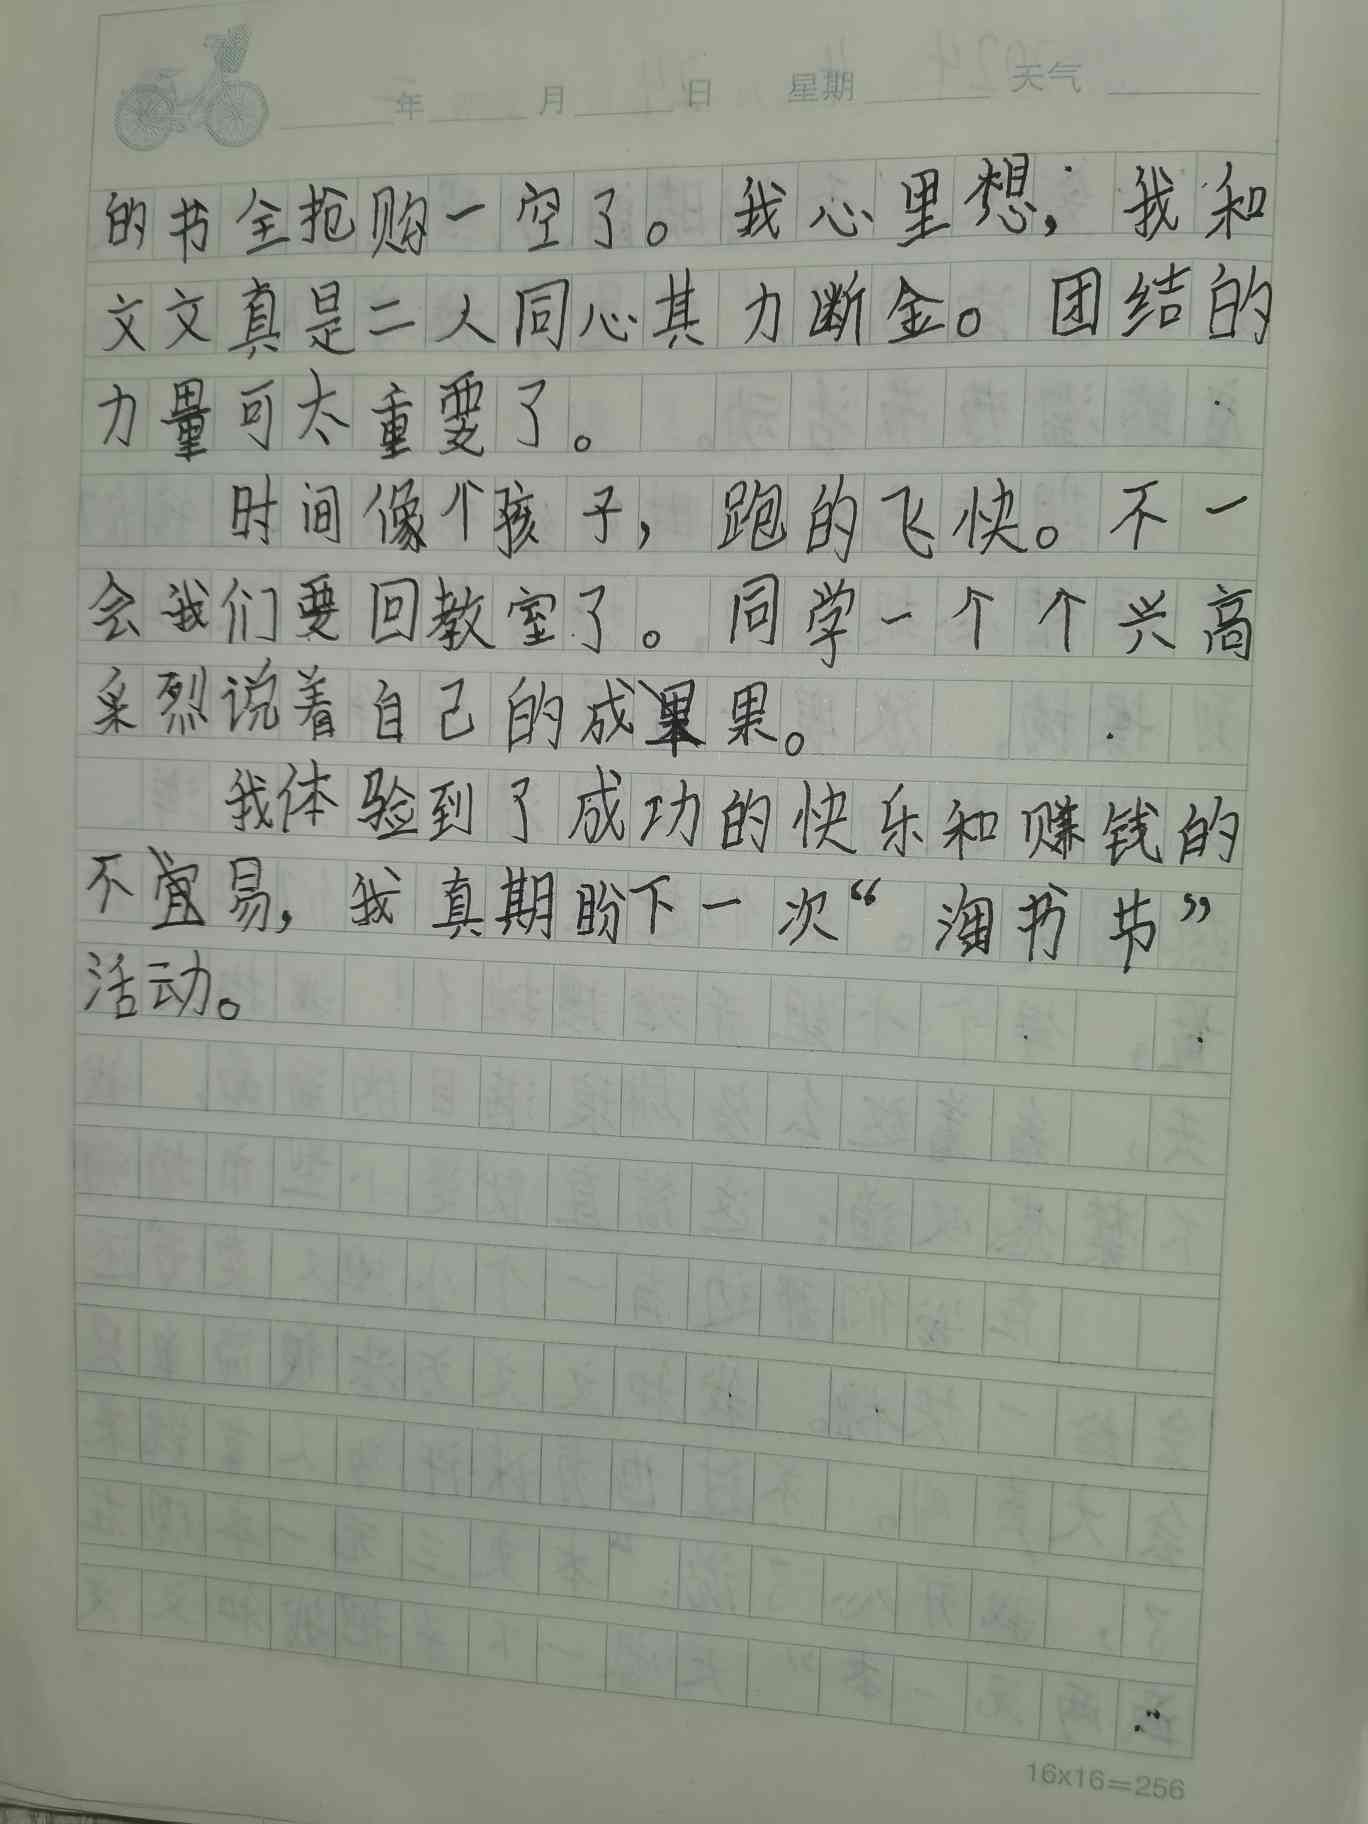 年 月 日 星期 天气
的书全抢购一空了。我心里想，我和
文文真是二人同心其力断金。团结的
力量可太重要了。
时间像个孩子，跑的飞快。不一
会我们要回教室了。同学一个个兴高
采烈说着自己的成果果。
我体验到了成功的快乐和赚钱的
不宜易，我真期盼下一次“淘书节”
活动。
16x16=256